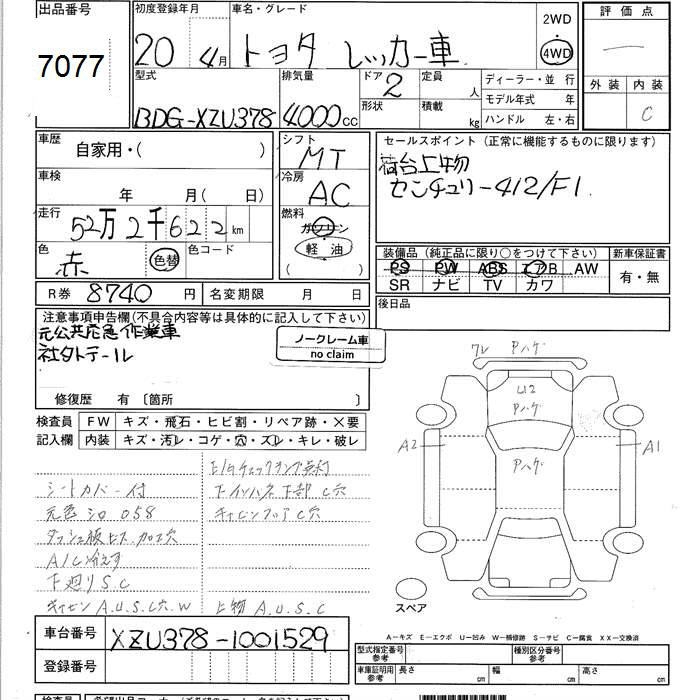 出品番号
7077
初度登録年月
20 年 4 月
車名・グレード
トヨタ レッカー車
2WD
4WD
評価点
外装 内装
C
型式
BDG-XZU378
排気量
4000cc
ドア 2
形状
定員 人
積載 kg
ディーラー・並行
モデル年式 年
ハンドル 左・右
車歴
自家用・( )
車検
年 月( 日)
走行
52万2千622km
色
赤
色替
色コード
シフト
MT
冷房
AC
燃料
ガソリン
軽油
( )
セールスポイント(正常に機能するものに限ります)
荷台上物
センチュリー412/F1.
装備品(純正品に限り○をつけて下さい)
PS PW ABS エアB AW
SR ナビ TV カワ
新車保証書
有・無
後日品
R券 8740円
名変期限 月 日
注意事項申告欄(不具合内容等は具体的に記入して下さい)
元公共応急作業車
社外テール
ノークレーム車
no claim
修復歴 有〔箇所 〕
検査員
記入欄
FW キズ・飛石・ヒビ割・リペア跡・×要
内装 キズ・汚レ・コゲ・穴・スレ・キレ・破レ
E/Gチェックランプ点灯
シートカバー付
元色シロ 058
ダッシュ板ビス、加工穴
A/C冷えず
下廻りS.C
キャビンA.U.S.C穴.W
下インパネ下部C穴
キャビンフロアC穴
上物A.U.S.C
ワレ Pハゲ
U2
Pハゲ
Pハゲ
A2
A1
スペア
A-キズ E-エクボ U-凹み W-補修跡 S-サビ C-腐食 XX-交換済
車台番号
XZU378-1001529
登録番号
型式指定番号
参考
種別区分番号
参考
車庫証明用
参考
長さ cm
幅 cm
高さ cm